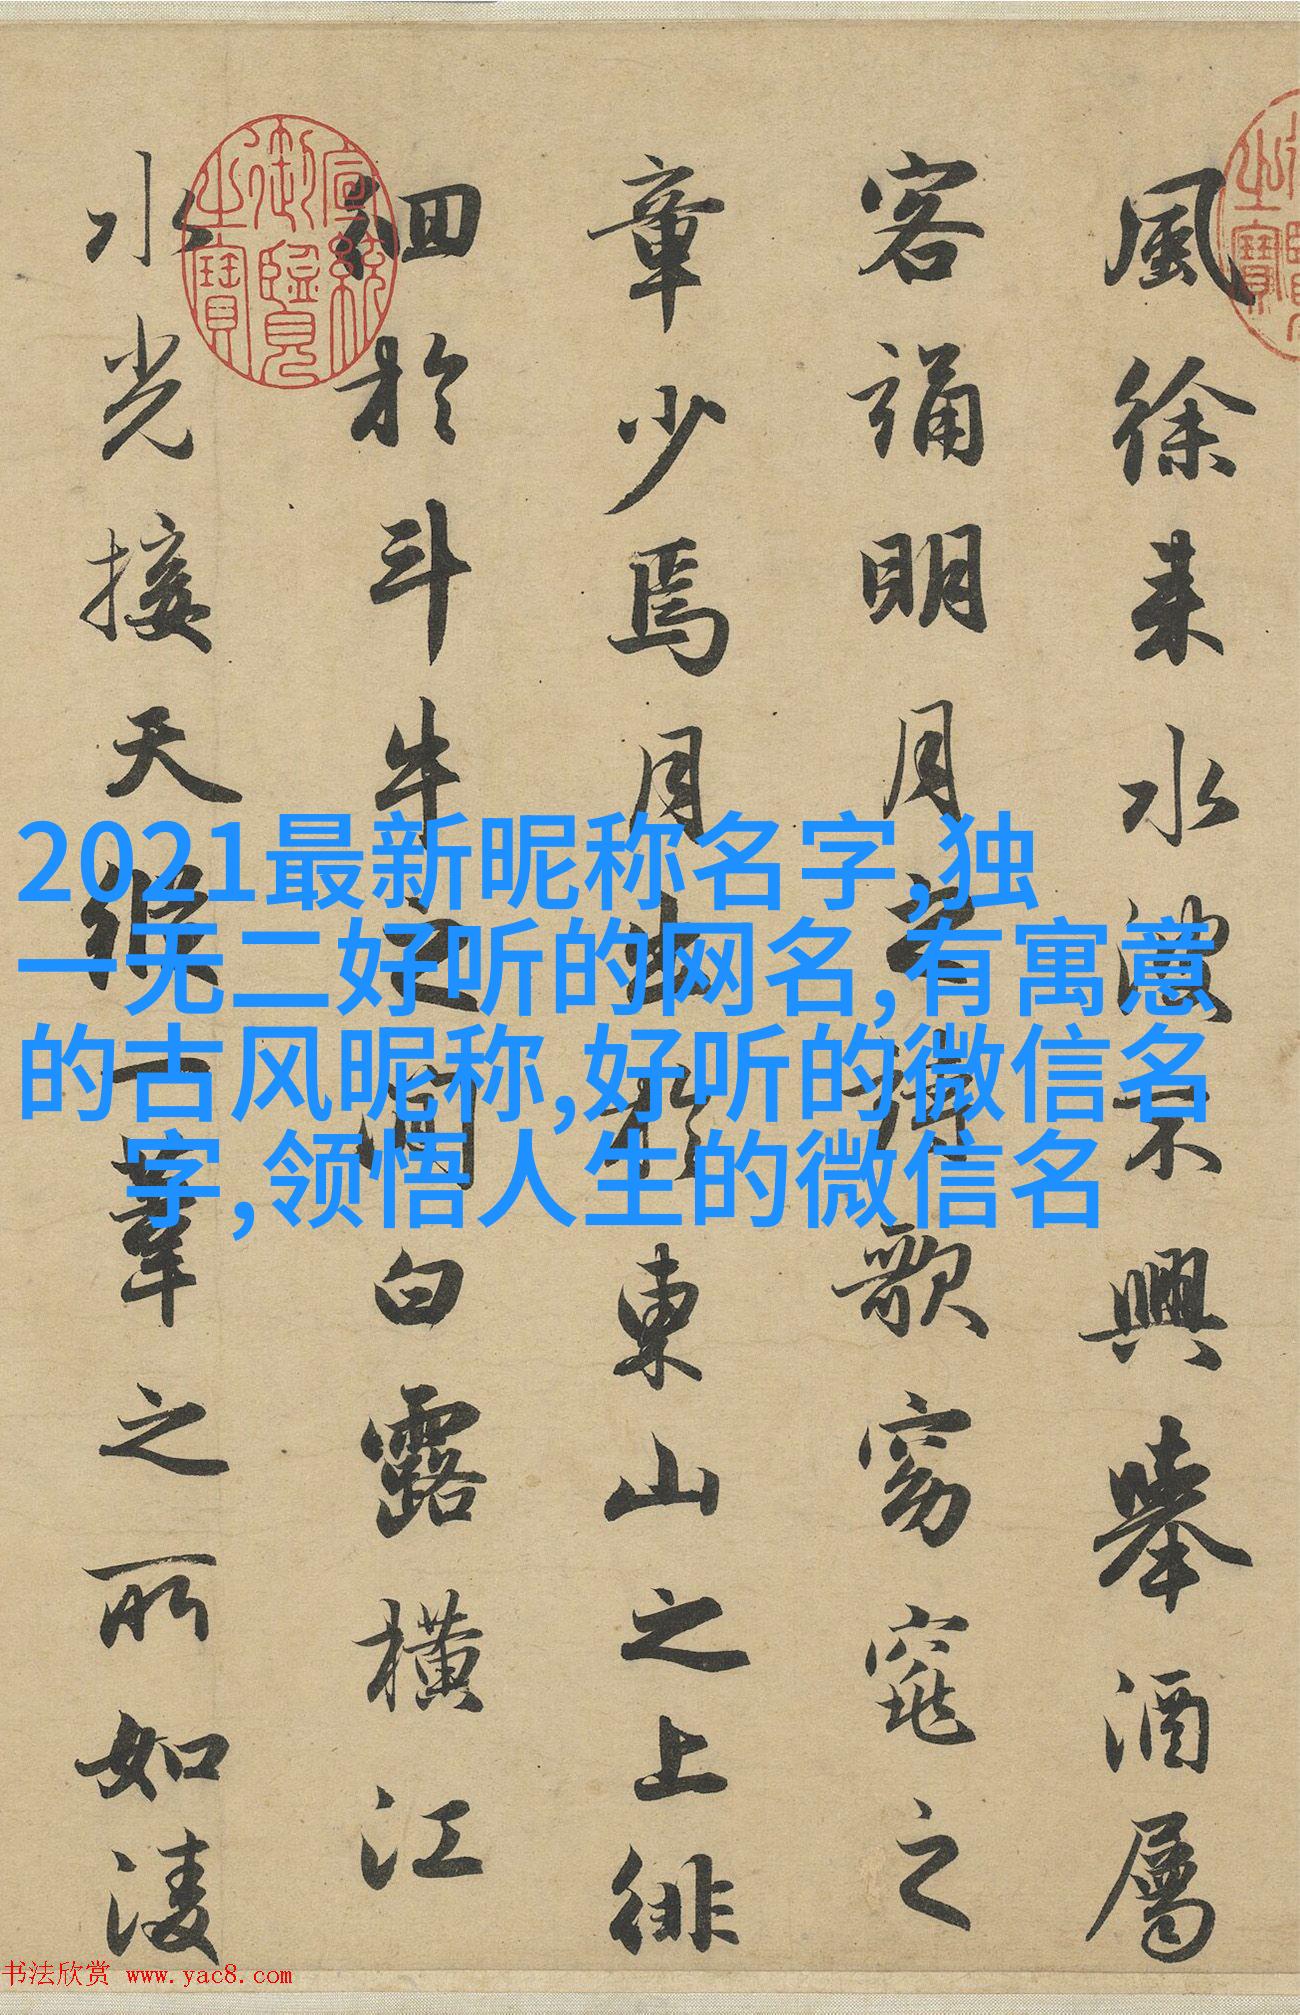 風徐来水波不興舉酒屬
客誦明月之詩歌窈窕之
章少焉月出於東山之上徘
徊於斗牛之間白露橫江
水光接天縱一葦之所如凌
宣統御覽之寶
2021最新昵称名字,独
一无二好听的网名,有寓意
的古风昵称,好听的微信名
字,领悟人生的微信名
书法欣赏 www.yac8.com